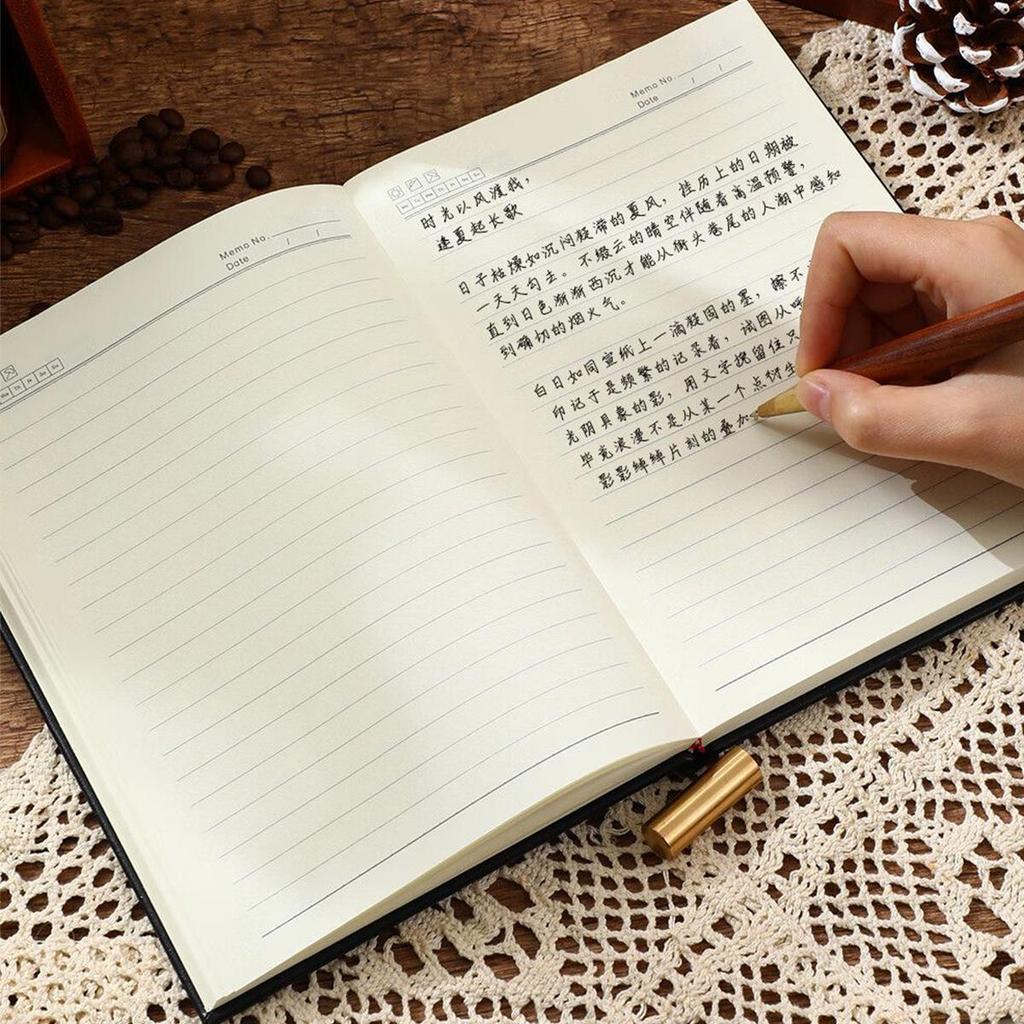 Memo No.
Date / /
Memo No.
Date / /
时光以风渡我，
逢夏起长歌
日子枯燥如沉闷凝滞的夏风，挂历上的日期被
一天天勾去。不缀云的晴空伴随着高温预警，
直到日色渐渐西沉才能从街头巷尾的人潮中感知
到确切的烟火气。
白日如同宣纸上一滴凝固的墨，擦不
印记于是频繁的记录着，试图从
光阴具象的影，用文字挽留住只
毕竟浪漫不是从某一个点衍生
影影绰绰片刻的叠加